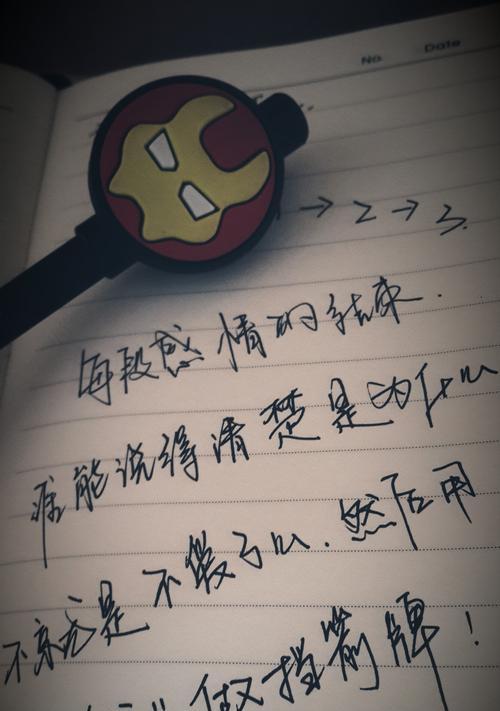 No. Date
→ 2 → 3.
每段感情的结束.
谁能说得清楚是为什么
不就是不爱了么.然后用
"做挡箭牌!